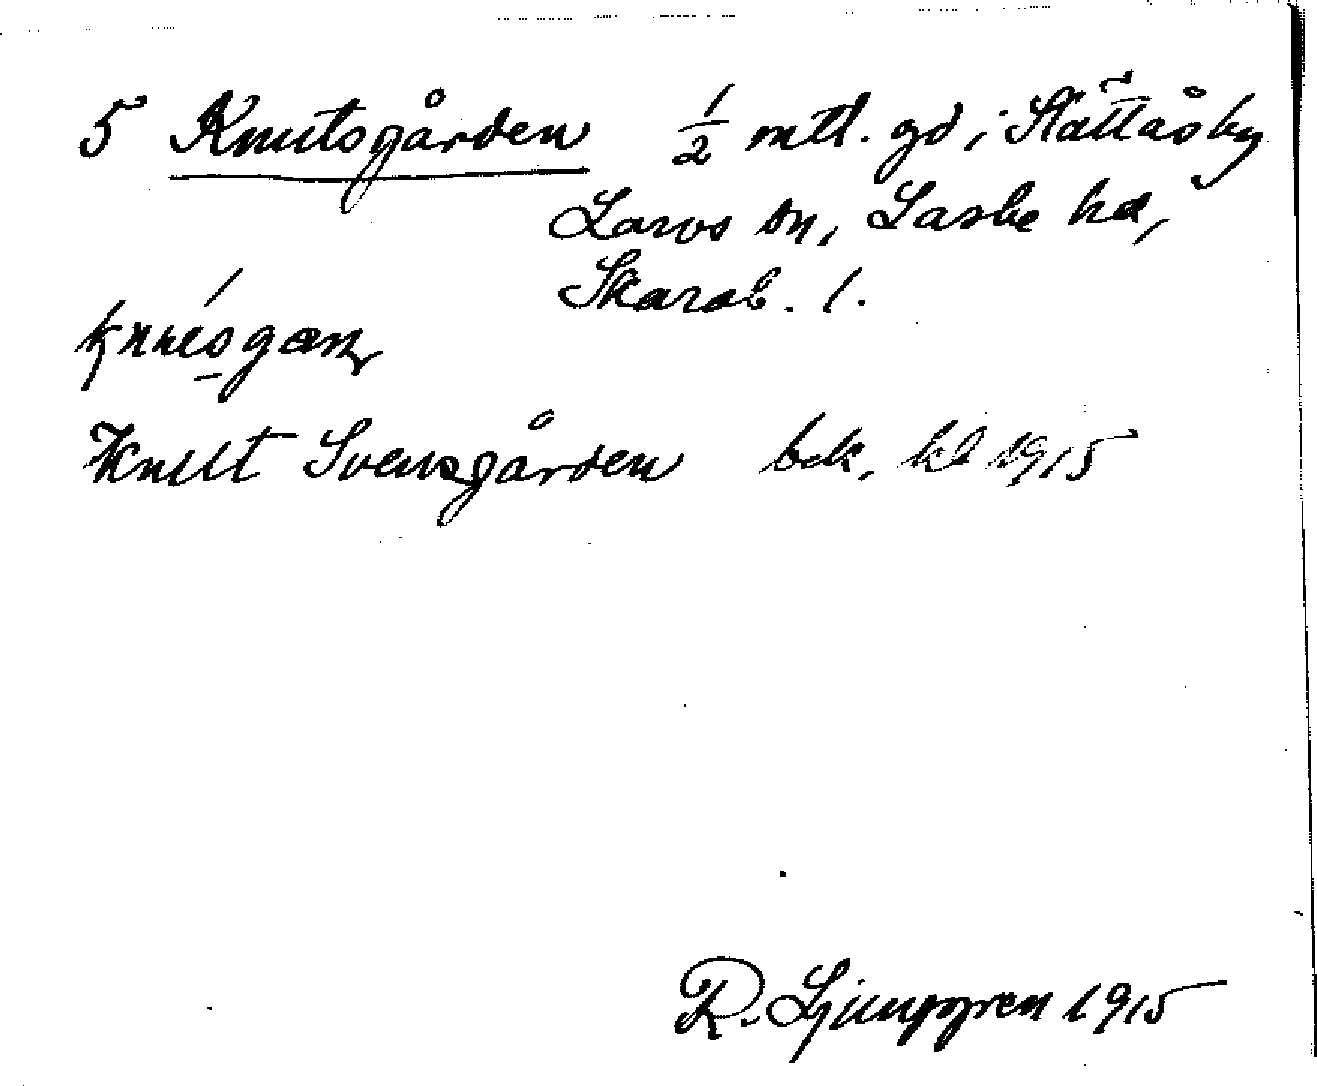 5 Knutsgården 1/2 mtl. gd i Slättåsby
Larvs sn, Laske hd,
Skarab. l.
Knut Svensgården bok. kb 1915
R. Ljunggren 1915